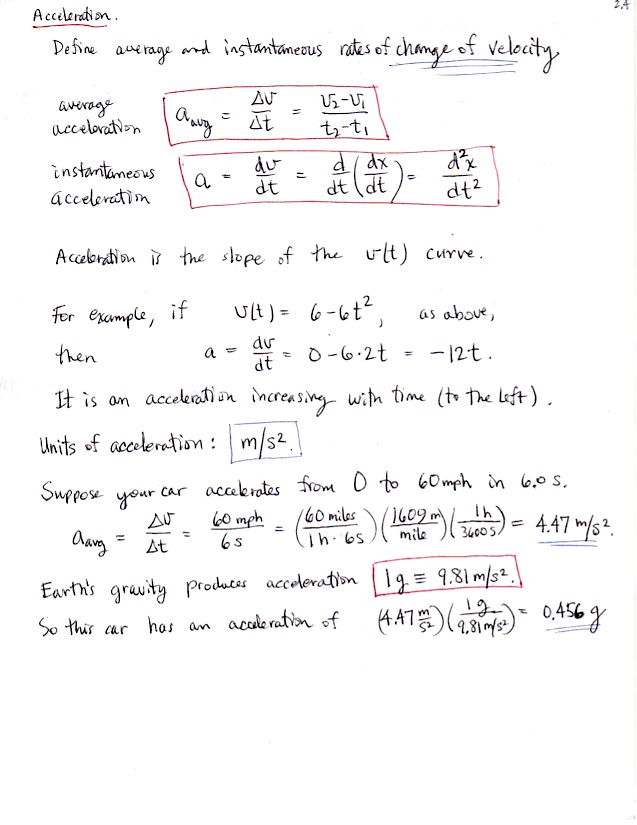 2.4
Acceleration.
Define average and instantaneous rates of change of velocity
average acceleration a_avg = Δv/Δt = (v₂-v₁)/(t₂-t₁)
instantaneous acceleration a = dv/dt = d/dt (dx/dt) = d²x/dt²
Acceleration is the slope of the v(t) curve.
For example, if v(t) = 6-6t², as above,
then a = dv/dt = 0-6·2t = -12t.
It is an acceleration increasing with time (to the left).
Units of acceleration: m/s².
Suppose your car accelerates from 0 to 60mph in 6.0 s.
a_avg = Δv/Δt = 60 mph/6 s = (60 miles/1h·6s)(1609 m/mile)(1h/3600 s) = 4.47 m/s².
Earth's gravity produces acceleration 1g ≡ 9.81 m/s².
So this car has an acceleration of (4.47 m/s²)(1g/9.81 m/s²) = 0.456 g